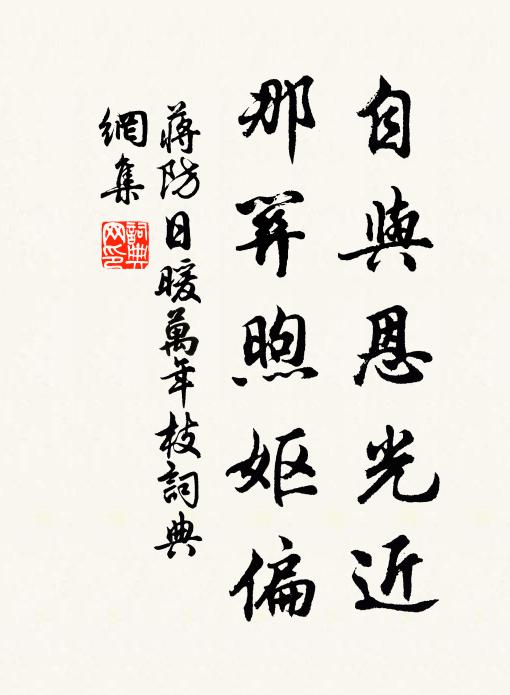 自與恩光近
那算煦妪偏
蔣防日暖萬年枝詞典
網集
詞典
网印